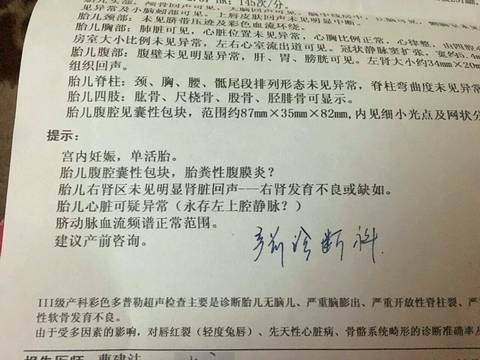 145次/分
胎儿颈部:未见脐带压迹及彩色血流环绕。
胎儿胸部:肺脏可见,心脏位置未见异常,心胸比例正常,心律整,由四腔
房室大小比例未见异常,左右心室流出道可见。冠状静脉窦扩张,宽约
胎儿腹部:腹壁未见明显异常,肝、胃、膀胱可见。左肾大小约34mm×20m
组织回声。
胎儿脊柱:颈、胸、腰、骶尾段排列形态未见异常,脊柱弯曲度未见异常
胎儿四肢:肱骨、尺桡骨、股骨、胫腓骨可显示。
胎儿腹腔见囊性包块,范围约87mm×35mm×82mm,内见细小光点及网状分
提示:
宫内妊娠,单活胎。
胎儿腹腔囊性包块,胎粪性腹膜炎?
胎儿右肾区未见明显肾脏回声——右肾发育不良或缺如。
胎儿心脏可疑异常(永存左上腔静脉?)
脐动脉血流频谱正常范围。
建议产前咨询。
产前诊断科
III级产科彩色多普勒超声检查主要是诊断胎儿无脑儿、严重脑膨出、严重开放性脊柱裂、严
性软骨发育不良。
由于受多因素的影响,对唇红裂(轻度兔唇)、先天性心脏病、骨骼系统畸形的诊断准确率